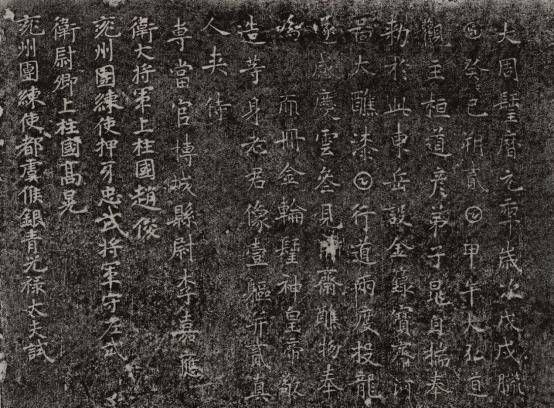 大周𨲢曆元𠡦歲次戊戌臘
癸巳朔貳𡆠甲午大弘道
觀主桓道彦弟子晁自揣奉
勅於此東岳設金籙寶齋河
啚大醮漆𡆠行道兩度投龍
遂感慶雲叄見齋醮物奉
冊金輪𨲢神皇帝敬
造等身老君像壹軀并貳真
人夾侍
專當官博城縣尉李嘉應
衛大將軍上柱國趙俊
雍州團練使押牙忠武將軍守左武
衛尉卿上柱國高晃
雍州團練使都虞候銀青光祿大夫試